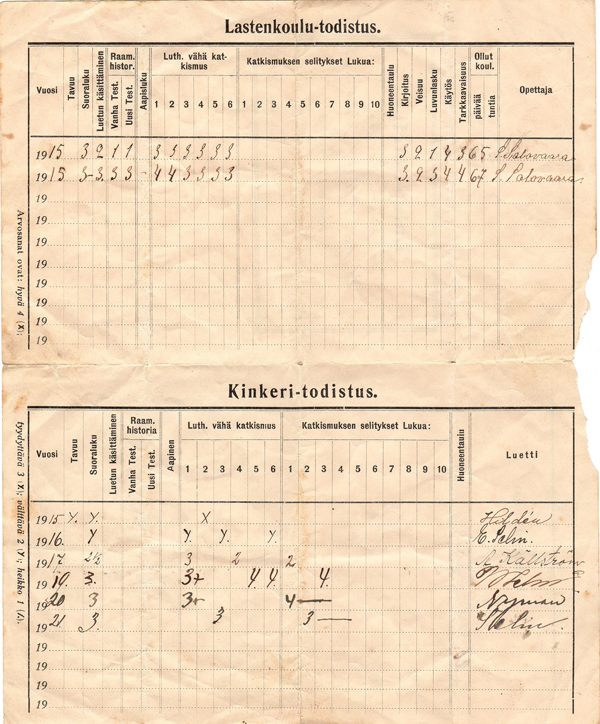 Lastenkoulu-todistus.
Vuosi Tavuu Suoraluku Luetun käsittäminen Raam. histor. Vanha Test. Uusi Test. Aapisluku Luth. vähä kat- kismus Katkismuksen selitykset Lukua: Huoneentaulu Kirjoitus Veisuu Luvunlasku Käytös Tarkkaavaisuus Ollut koul. päivää tuntia Opettaja
1 2 3 4 5 6 1 2 3 4 5 6 7 8 9 10
1915 3 2 1 1 3 3 3 3 3 3 3 2 1 4 3 65 S. Salovaara
1915 3 - 3. 3 3 - 4 4 3 3 3 3 3. 2 3 4 4 67 S. Salovaara
19
19
19
19
19
19
19
Arvosanat ovat: hyvä 4 (X);
Kinkeri-todistus.
Vuosi Tavuu Suoraluku Luetun käsittäminen Raam. historia Vanha Test. Uusi Test. Aapinen Luth. vähä katkismus Katkismuksen selitykset Lukua: Huoneentaulu Luetti
1 2 3 4 5 6 1 2 3 4 5 6 7 8 9 10
1915 Y. Y. X Hildén
1916. Y Y. Y. Y. E. Selin.
1917 2½ 3 2 2 A Källström
1919. 3. 3+ 4 4 3.
1920 3 3- 4 — Nyman
1921. 3. 3 3 — Selin.
19
19
19
19
tyydyttävä 3 (X); välttävä 2 (Y); heikko 1 (/).